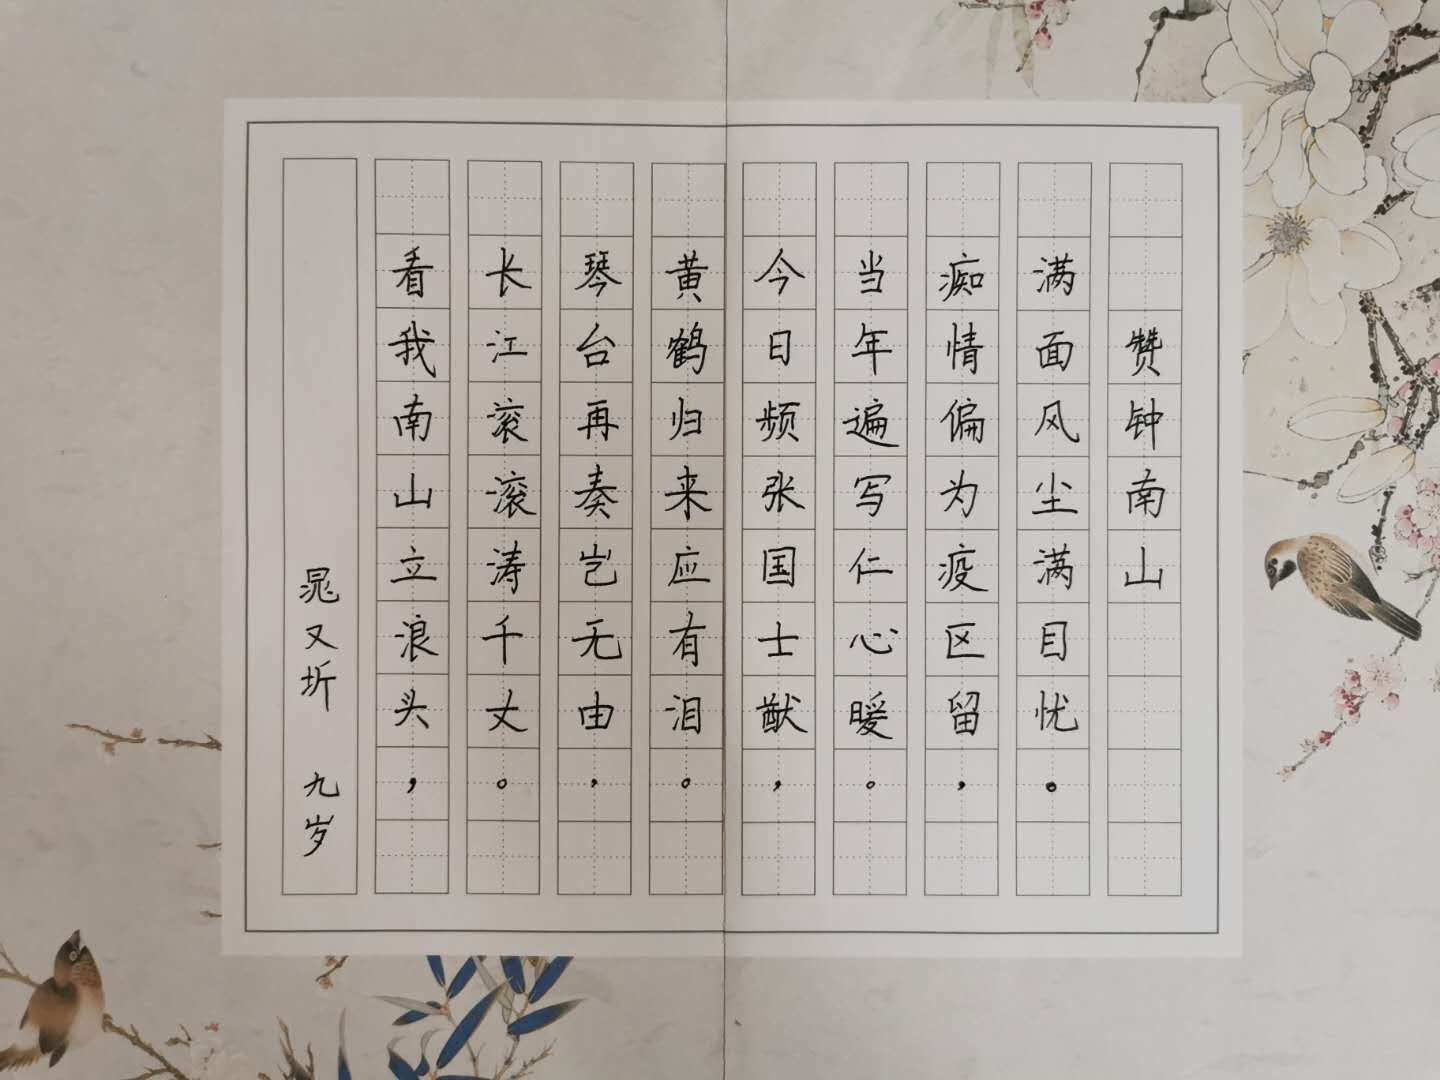 赞钟南山
满面风尘满目忧。
痴情偏为疫区留，
当年遍写仁心暖。
今日频张国士猷，
黄鹤归来应有泪。
琴台再奏岂无由，
长江滚滚涛千丈。
看我南山立浪头，
晁又圻 九岁